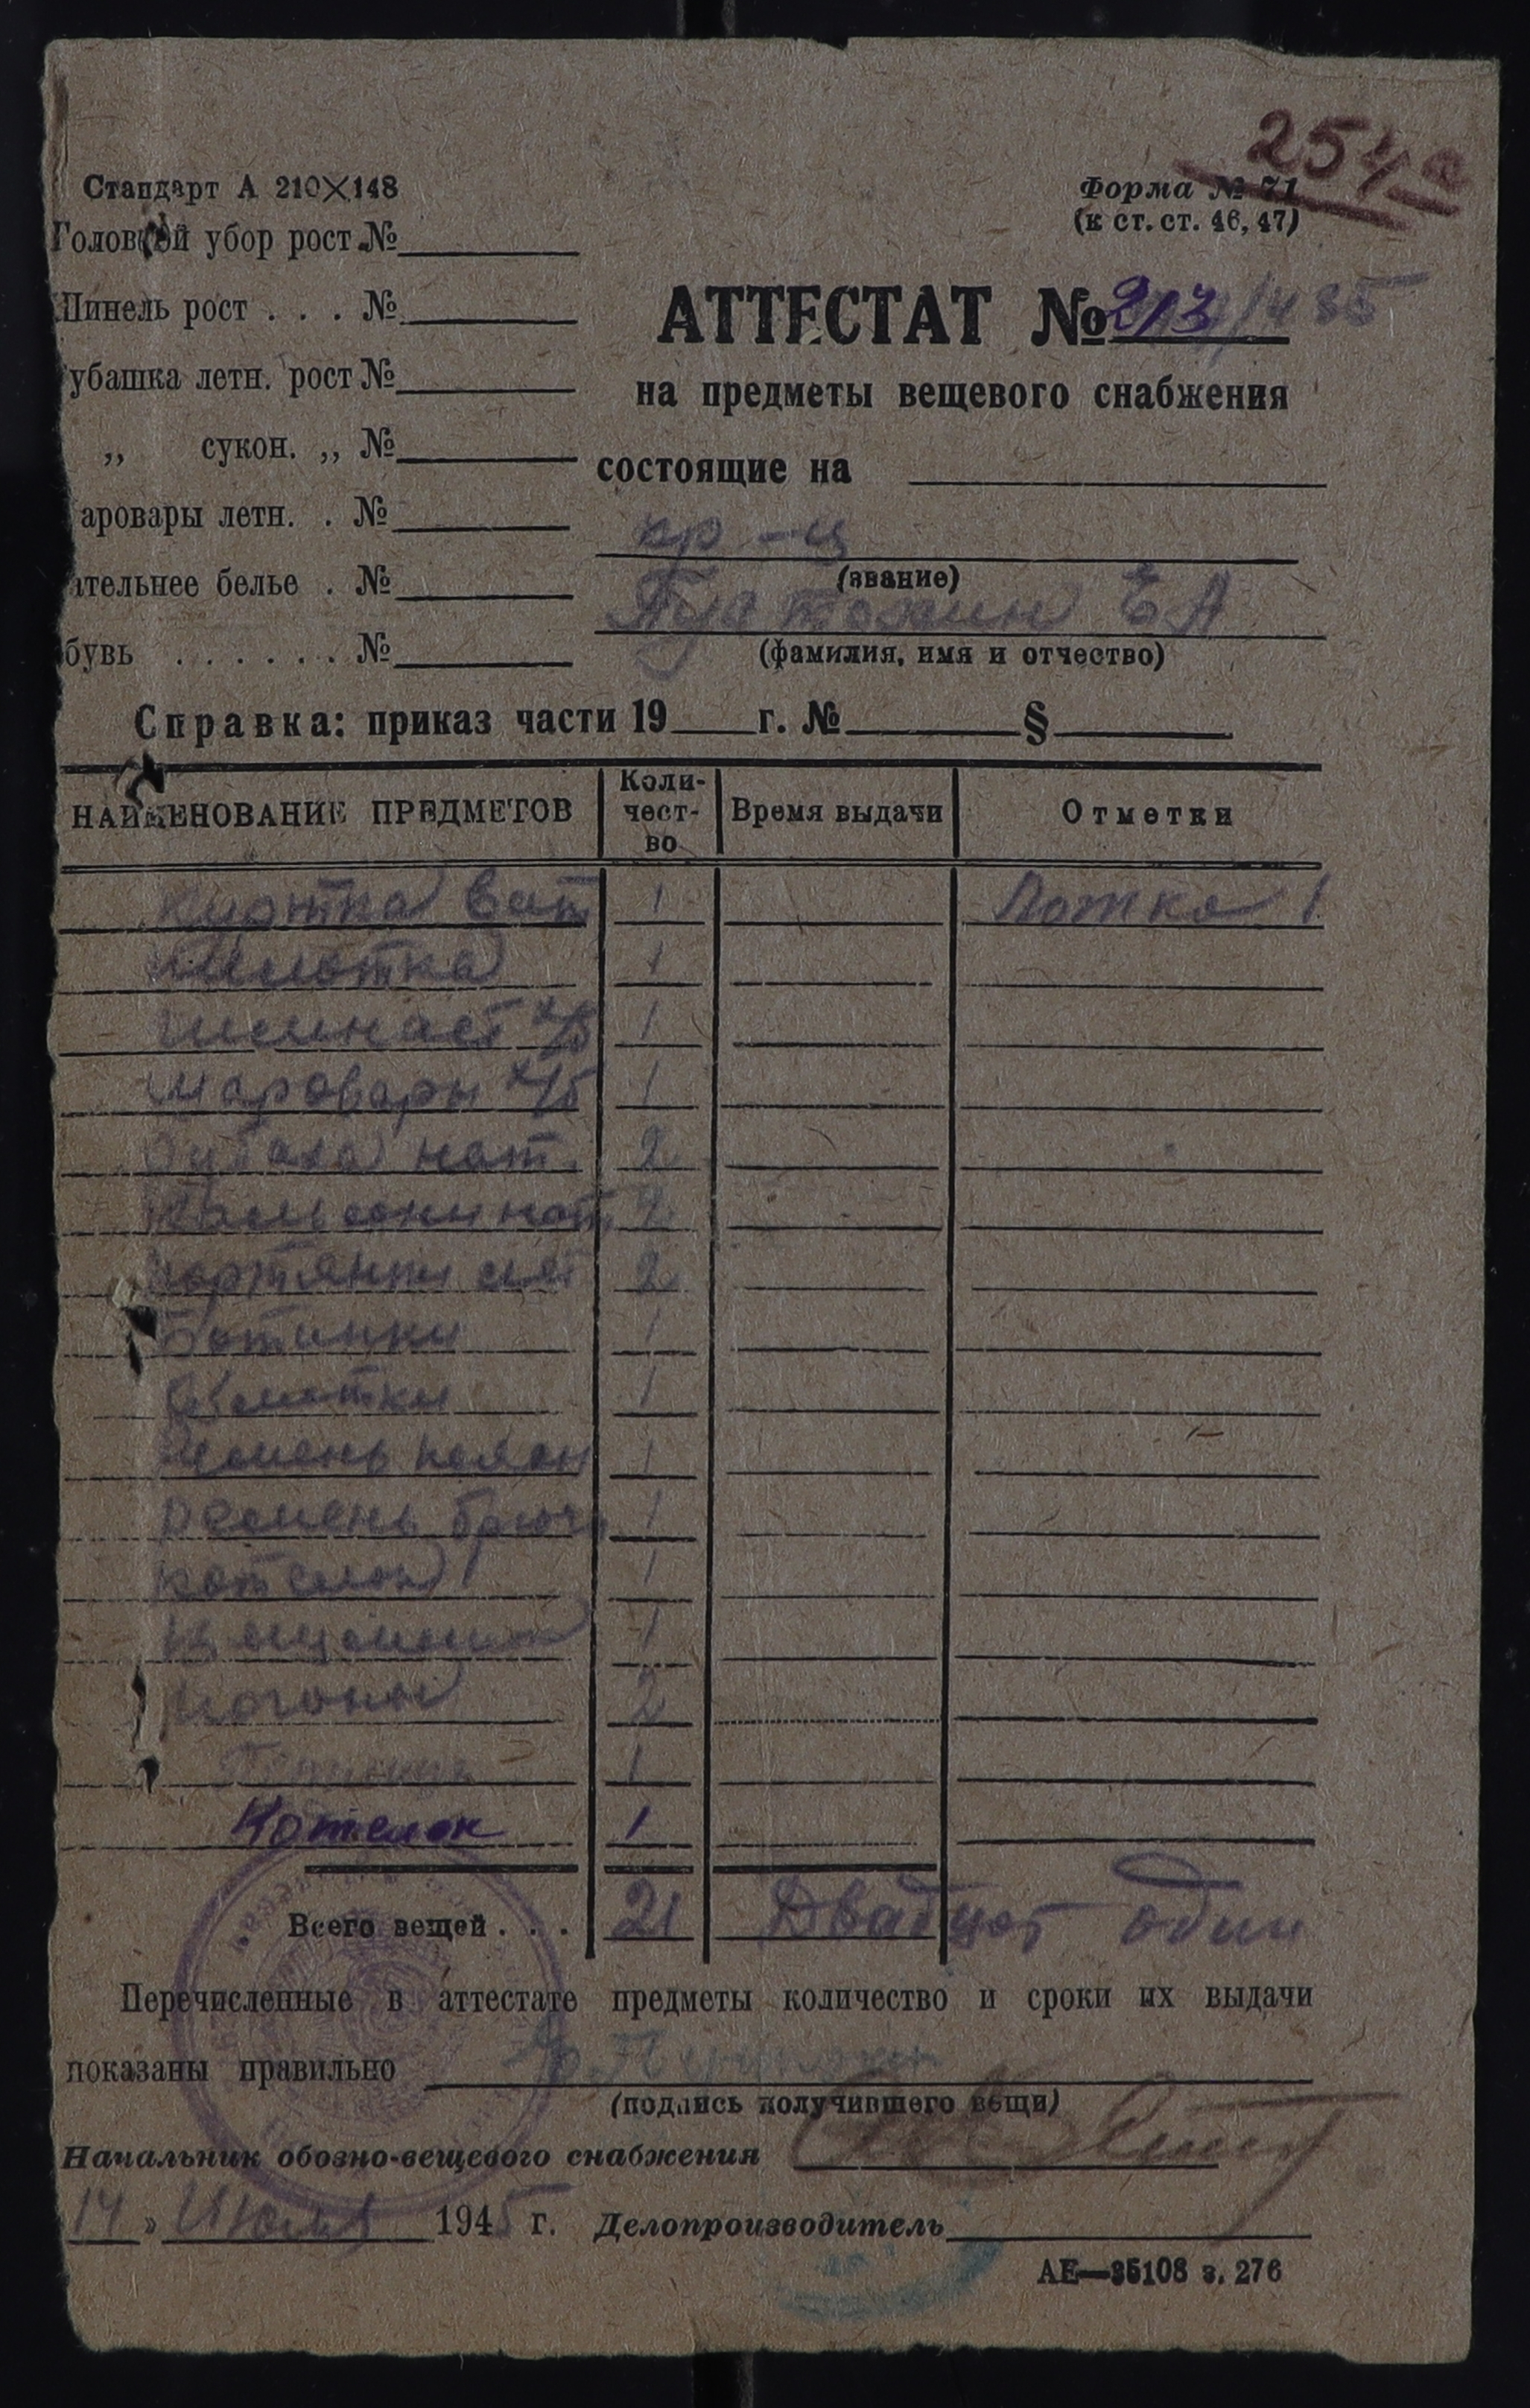 254а
Стандарт А 210×148
Форма № 71
(к ст. ст. 46, 47)
Головной убор рост №
Шинель рост . . . №
АТТЕСТАТ № 213/485
убашка летн. рост №
на предметы вещевого снабжения
„ сукон. „ №
состоящие на
аровары летн. . №
кр-ц
(звание)
ательнее белье . №
Е А
(фамилия, имя и отчество)
бувь . . . . . . №
Справка: приказ части 19 г. № §
НАИМЕНОВАНИЕ ПРЕДМЕТОВ Коли-чест-во Время выдачи Отметки
Куртка ват 1 Ложка 1
Пилотка 1
Гимнаст х/б 1
Шаровары х/б 1
Рубаха нат. 2
Кальсоны нат 2
Портянки лет 2
Ботинки 1
Обмотки 1
Ремень поясн 1
Ремень брючн 1
Котелок 1
Вещмешок 1
Погоны 2
1
Котелок 1
Всего вещей . . . 21 Двадцат один
Перечисленные в аттестате предметы количество и сроки их выдачи
показаны правильно
(подпись получившего вещи)
Начальник обозно-вещевого снабжения
14 » Июля 1945 г. Делопроизводитель
АЕ—35108 з. 276